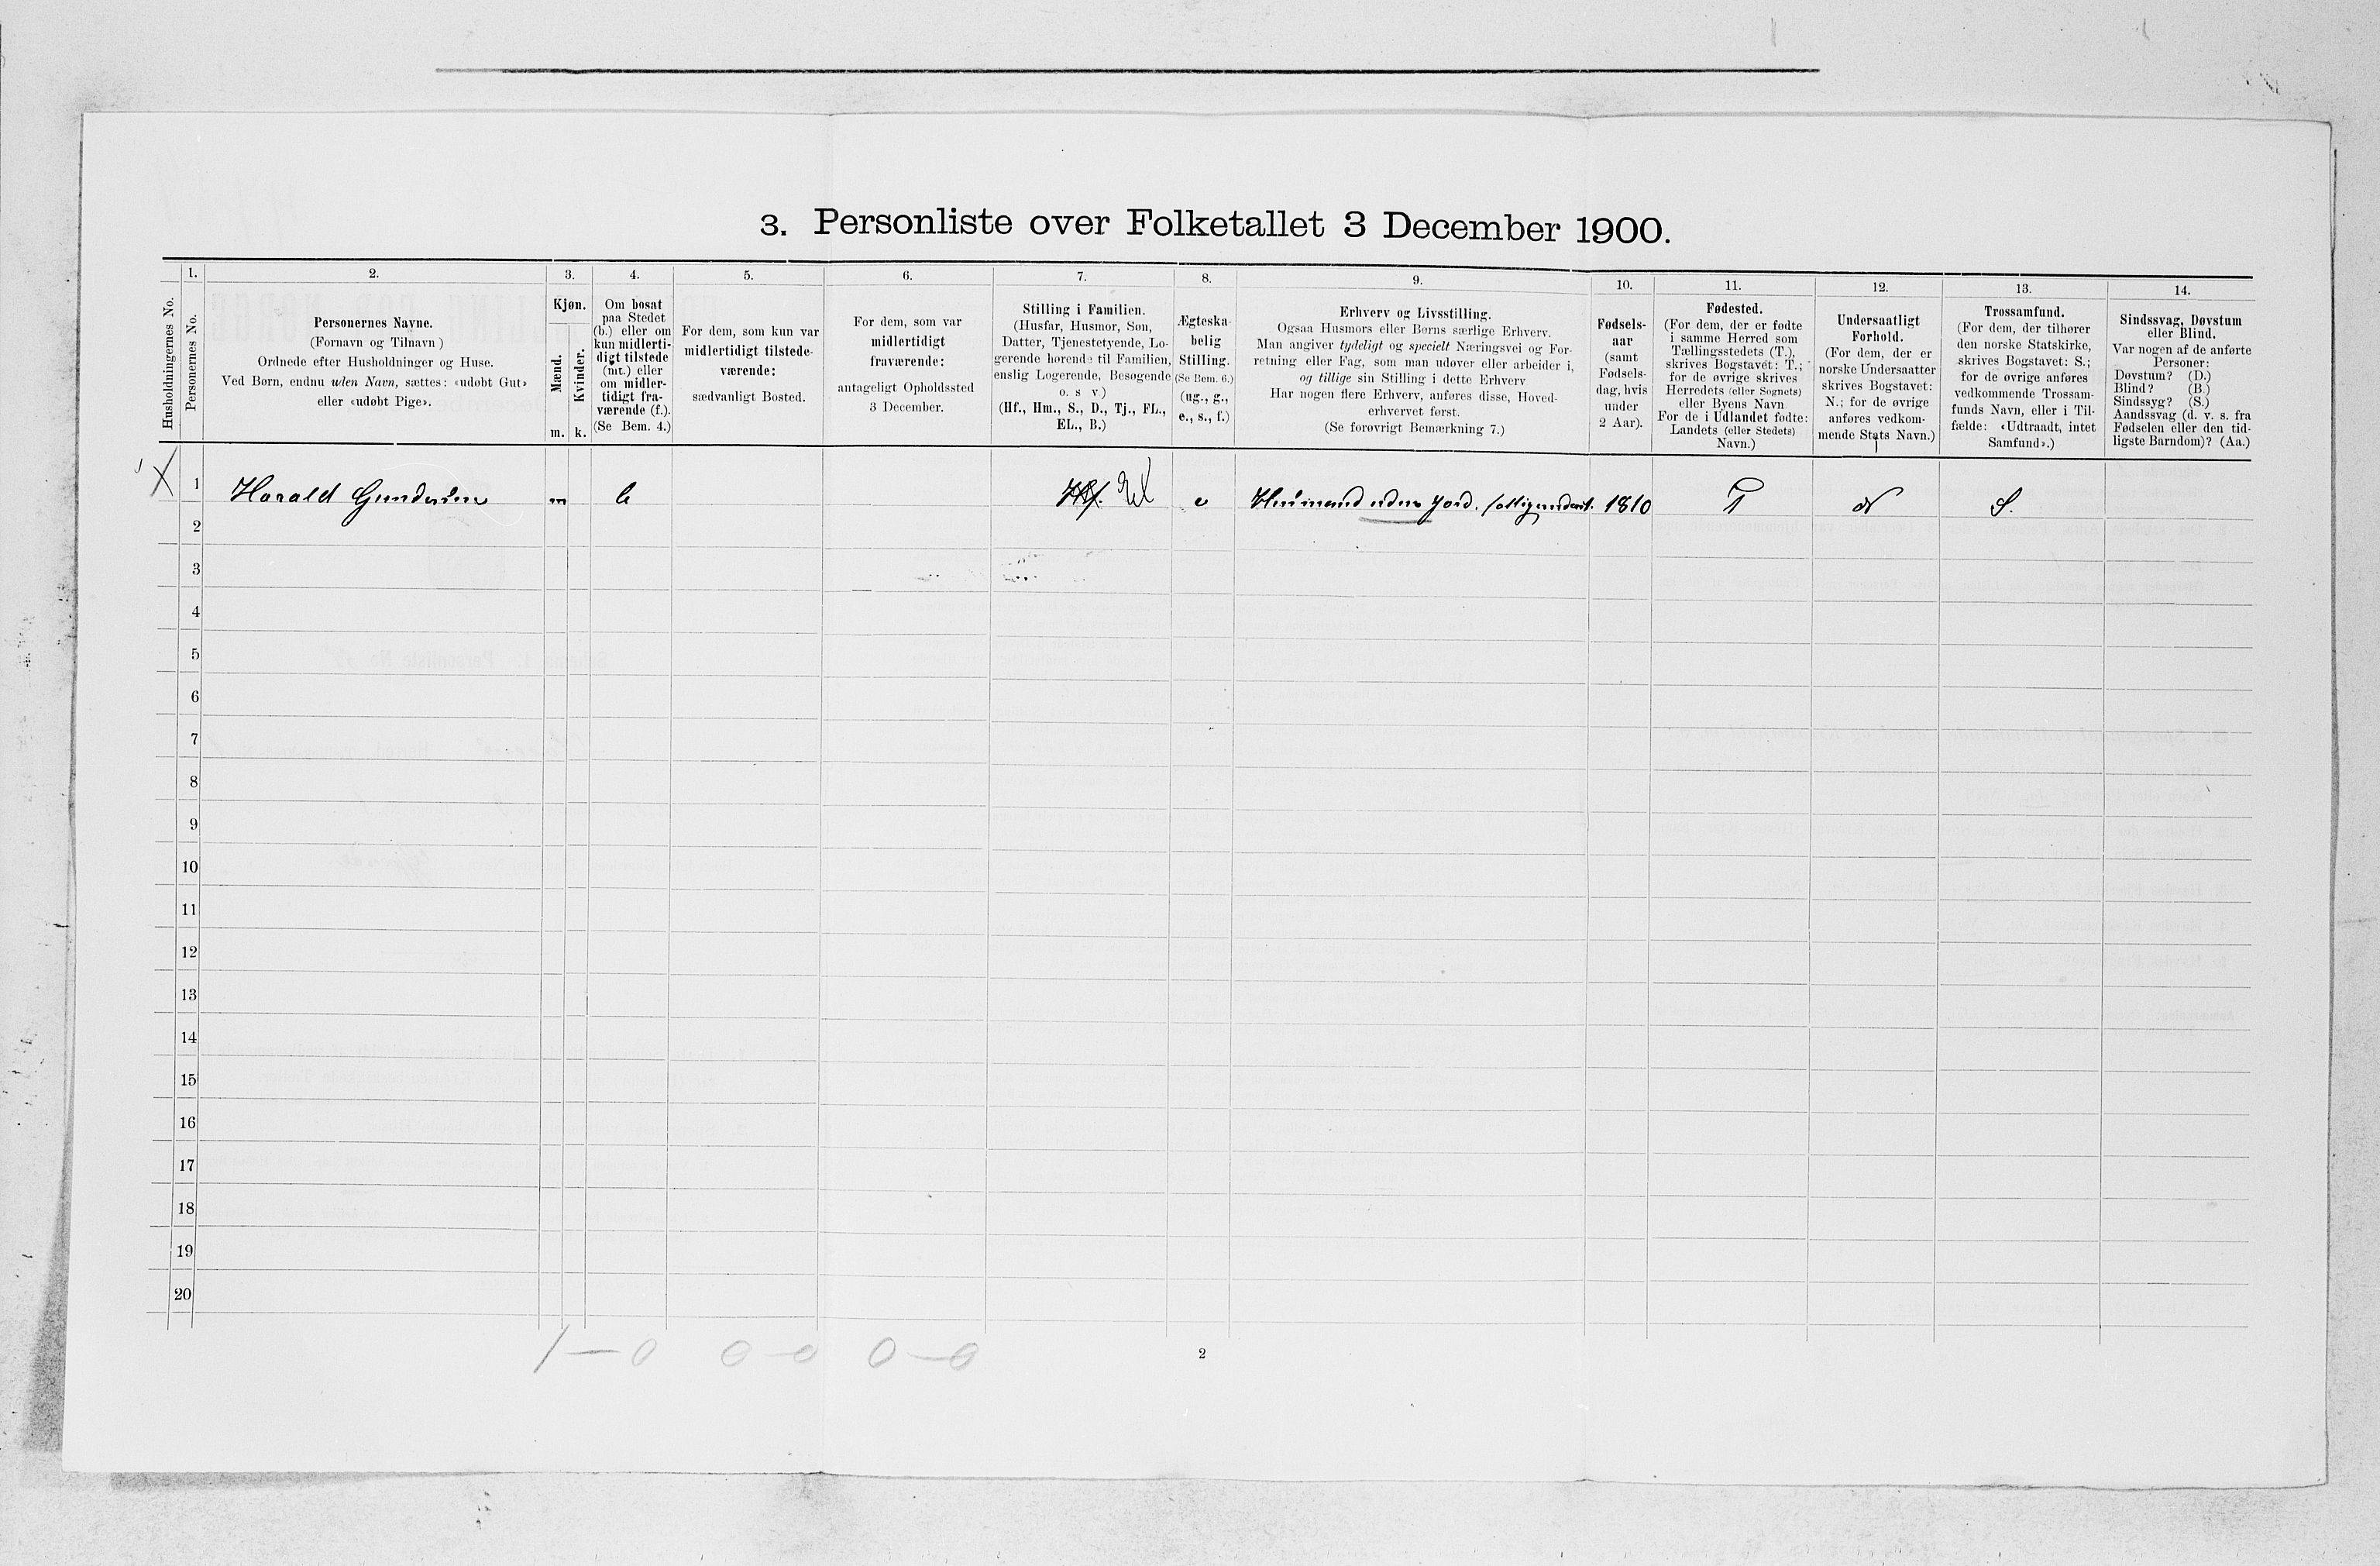 3. Personliste over Folketallet 3 December 1900.
Husholdningernes No.
1.
Personernes No.
2.
Personernes Navne.
(Fornavn og Tilnavn)
Ordnede efter Husholdninger og Huse.
Ved Børn, endnu uden Navn, sættes: «udøbt Gut»
eller «udøbt Pige».
3.
Kjøn.
Mænd.
Kvinder.
m. k.
4.
Om bosat
paa Stedet
(b.) eller om
kun midlerti-
digt tilstede
(mt.) eller
om midler-
tidigt fra-
værende (f.).
(Se Bem. 4.)
5.
For dem, som kun var
midlertidigt tilstede-
værende:
sædvanligt Bosted.
6.
For dem, som var
midlertidigt
fraværende:
antageligt Opholdssted
3 December.
7.
Stilling i Familien.
(Husfar, Husmor, Søn,
Datter, Tjenestetyende, Lo-
gerende hørende til Familien,
enslig Logerende, Besøgende
o. s v.)
(Hf., Hm., S., D., Tj., FL.,
EL., B.)
8.
Ægteska-
belig
Stilling.
(Se Bem. 6.)
(ug., g.,
e., s., f.)
9.
Erhverv og Livsstilling.
Ogsaa Husmors eller Børns særlige Erhverv.
Man angiver tydeligt og specielt Næringsvei og For-
retning eller Fag, som man udøver eller arbeider i,
og tillige sin Stilling i dette Erhverv
Har nogen flere Erhverv, anføres disse, Hoved-
erhvervet først.
(Se forøvrigt Bemærkning 7.)
10.
Fødsels-
aar
(samt
Fødsels-
dag, hvis
under
2 Aar).
11.
Fødested.
(For dem, der er fødte
i samme Herred som
Tællingsstedets (T.),
skrives Bogstavet: T.;
for de øvrige skrives
Herredets (eller Sognets)
eller Byens Navn
For de i Udlandet fødte:
Landets (eller Stedets)
Navn.)
12.
Undersaatligt
Forhold.
(For dem, der er
norske Undersaatter
skrives Bogstavet:
N.; for de øvrige
anføres vedkom-
mende Stats Navn.)
13.
Trossamfund.
(For dem, der tilhører
den norske Statskirke,
skrives Bogstavet: S.;
for de øvrige anføres
vedkommende Trossam-
funds Navn, eller i Til-
fælde: «Udtraadt, intet
Samfund».)
14.
Sindssvag, Døvstum
eller Blind.
Var nogen af de anførte
Personer:
Døvstum? (D.)
Blind? (B.)
Sindssyg? (S.)
Aandssvag (d. v. s. fra
Fødselen eller den tid-
ligste Barndom)? (Aa.)
1 Harald Gundersen m b Hf. El e Husmand uden Jord. fattigunderst. 1810 T N S.
2
3
4
5
6
7
8
9
10
11
12
13
14
15
16
17
18
19
20
1 — 0 0 — 0 0 — 0
2